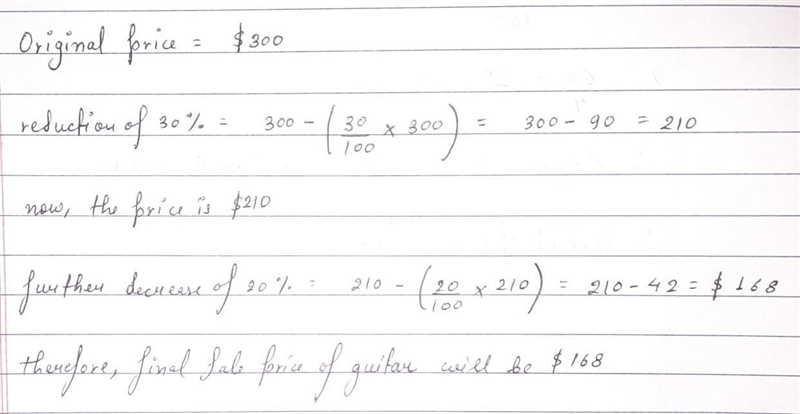 Original price = $300
reduction of 30% = 300 - (30/100 x 300) = 300 - 90 = 210
now, the price is $210
further decrease of 20% = 210 - (20/100 x 210) = 210 - 42 = $168
therefore, final sale price of guitar will be $168